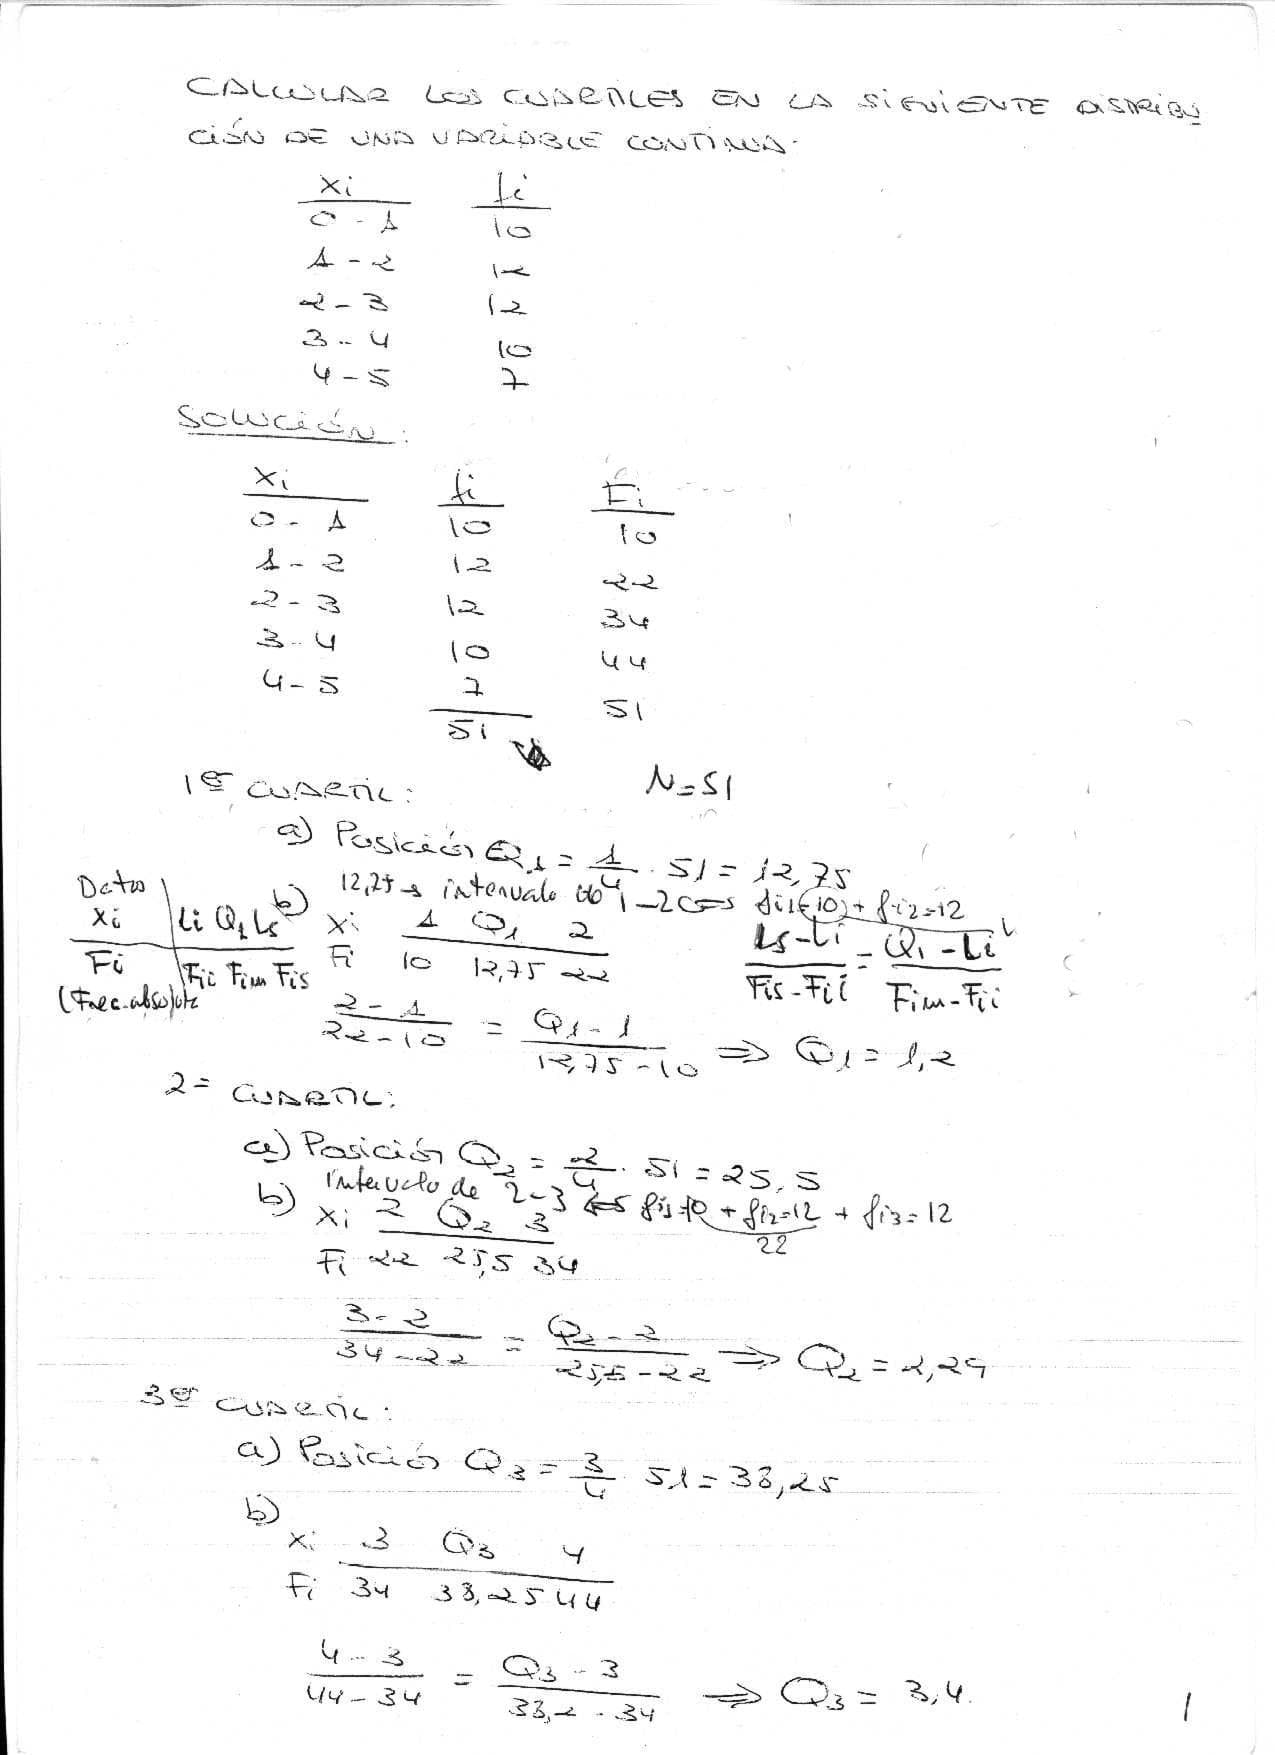 CALCULAR LOS CUARTILES EN LA SIGUIENTE DISTRIBU
CIÓN DE UNA VARIABLE CONTINUA.
xi fi
0 - 1 10
1 - 2 12
2 - 3 12
3 - 4 10
4 - 5 7
SOLUCIÓN:
xi fi Fi
0 - 1 10 10
1 - 2 12 22
2 - 3 12 34
3 - 4 10 44
4 - 5 7 51
51
1er CUARTIL: N=51
a) Posición Q1 = 1/4 . 51 = 12,75
b) 12,75 → intervalo de 1-2 fi1=10 + fi2=12
Datos
xi | Li Q1 Ls
Fi | Fii Fim Fis
(Frec. absoluta
xi 1 Q1 2
Fi 10 12,75 22
Ls-Li / Fis-Fii = Q1-Li / Fim-Fii
2-1 / 22-10 = Q1-1 / 12,75-10 ⇒ Q1 = 1,2
2º CUARTIL:
a) Posición Q2 = 2/4 . 51 = 25,5
b) Intervalo de 2-3 fi1=10 + fi2=12 + fi3=12
22
xi 2 Q2 3
Fi 22 25,5 34
3-2 / 34-22 = Q2-2 / 25,5-22 ⇒ Q2 = 2,29
3er CUARTIL:
a) Posición Q3 = 3/4 51 = 38,25
b)
xi 3 Q3 4
Fi 34 38,25 44
4-3 / 44-34 = Q3-3 / 38,2-34 ⇒ Q3 = 3,4.
1